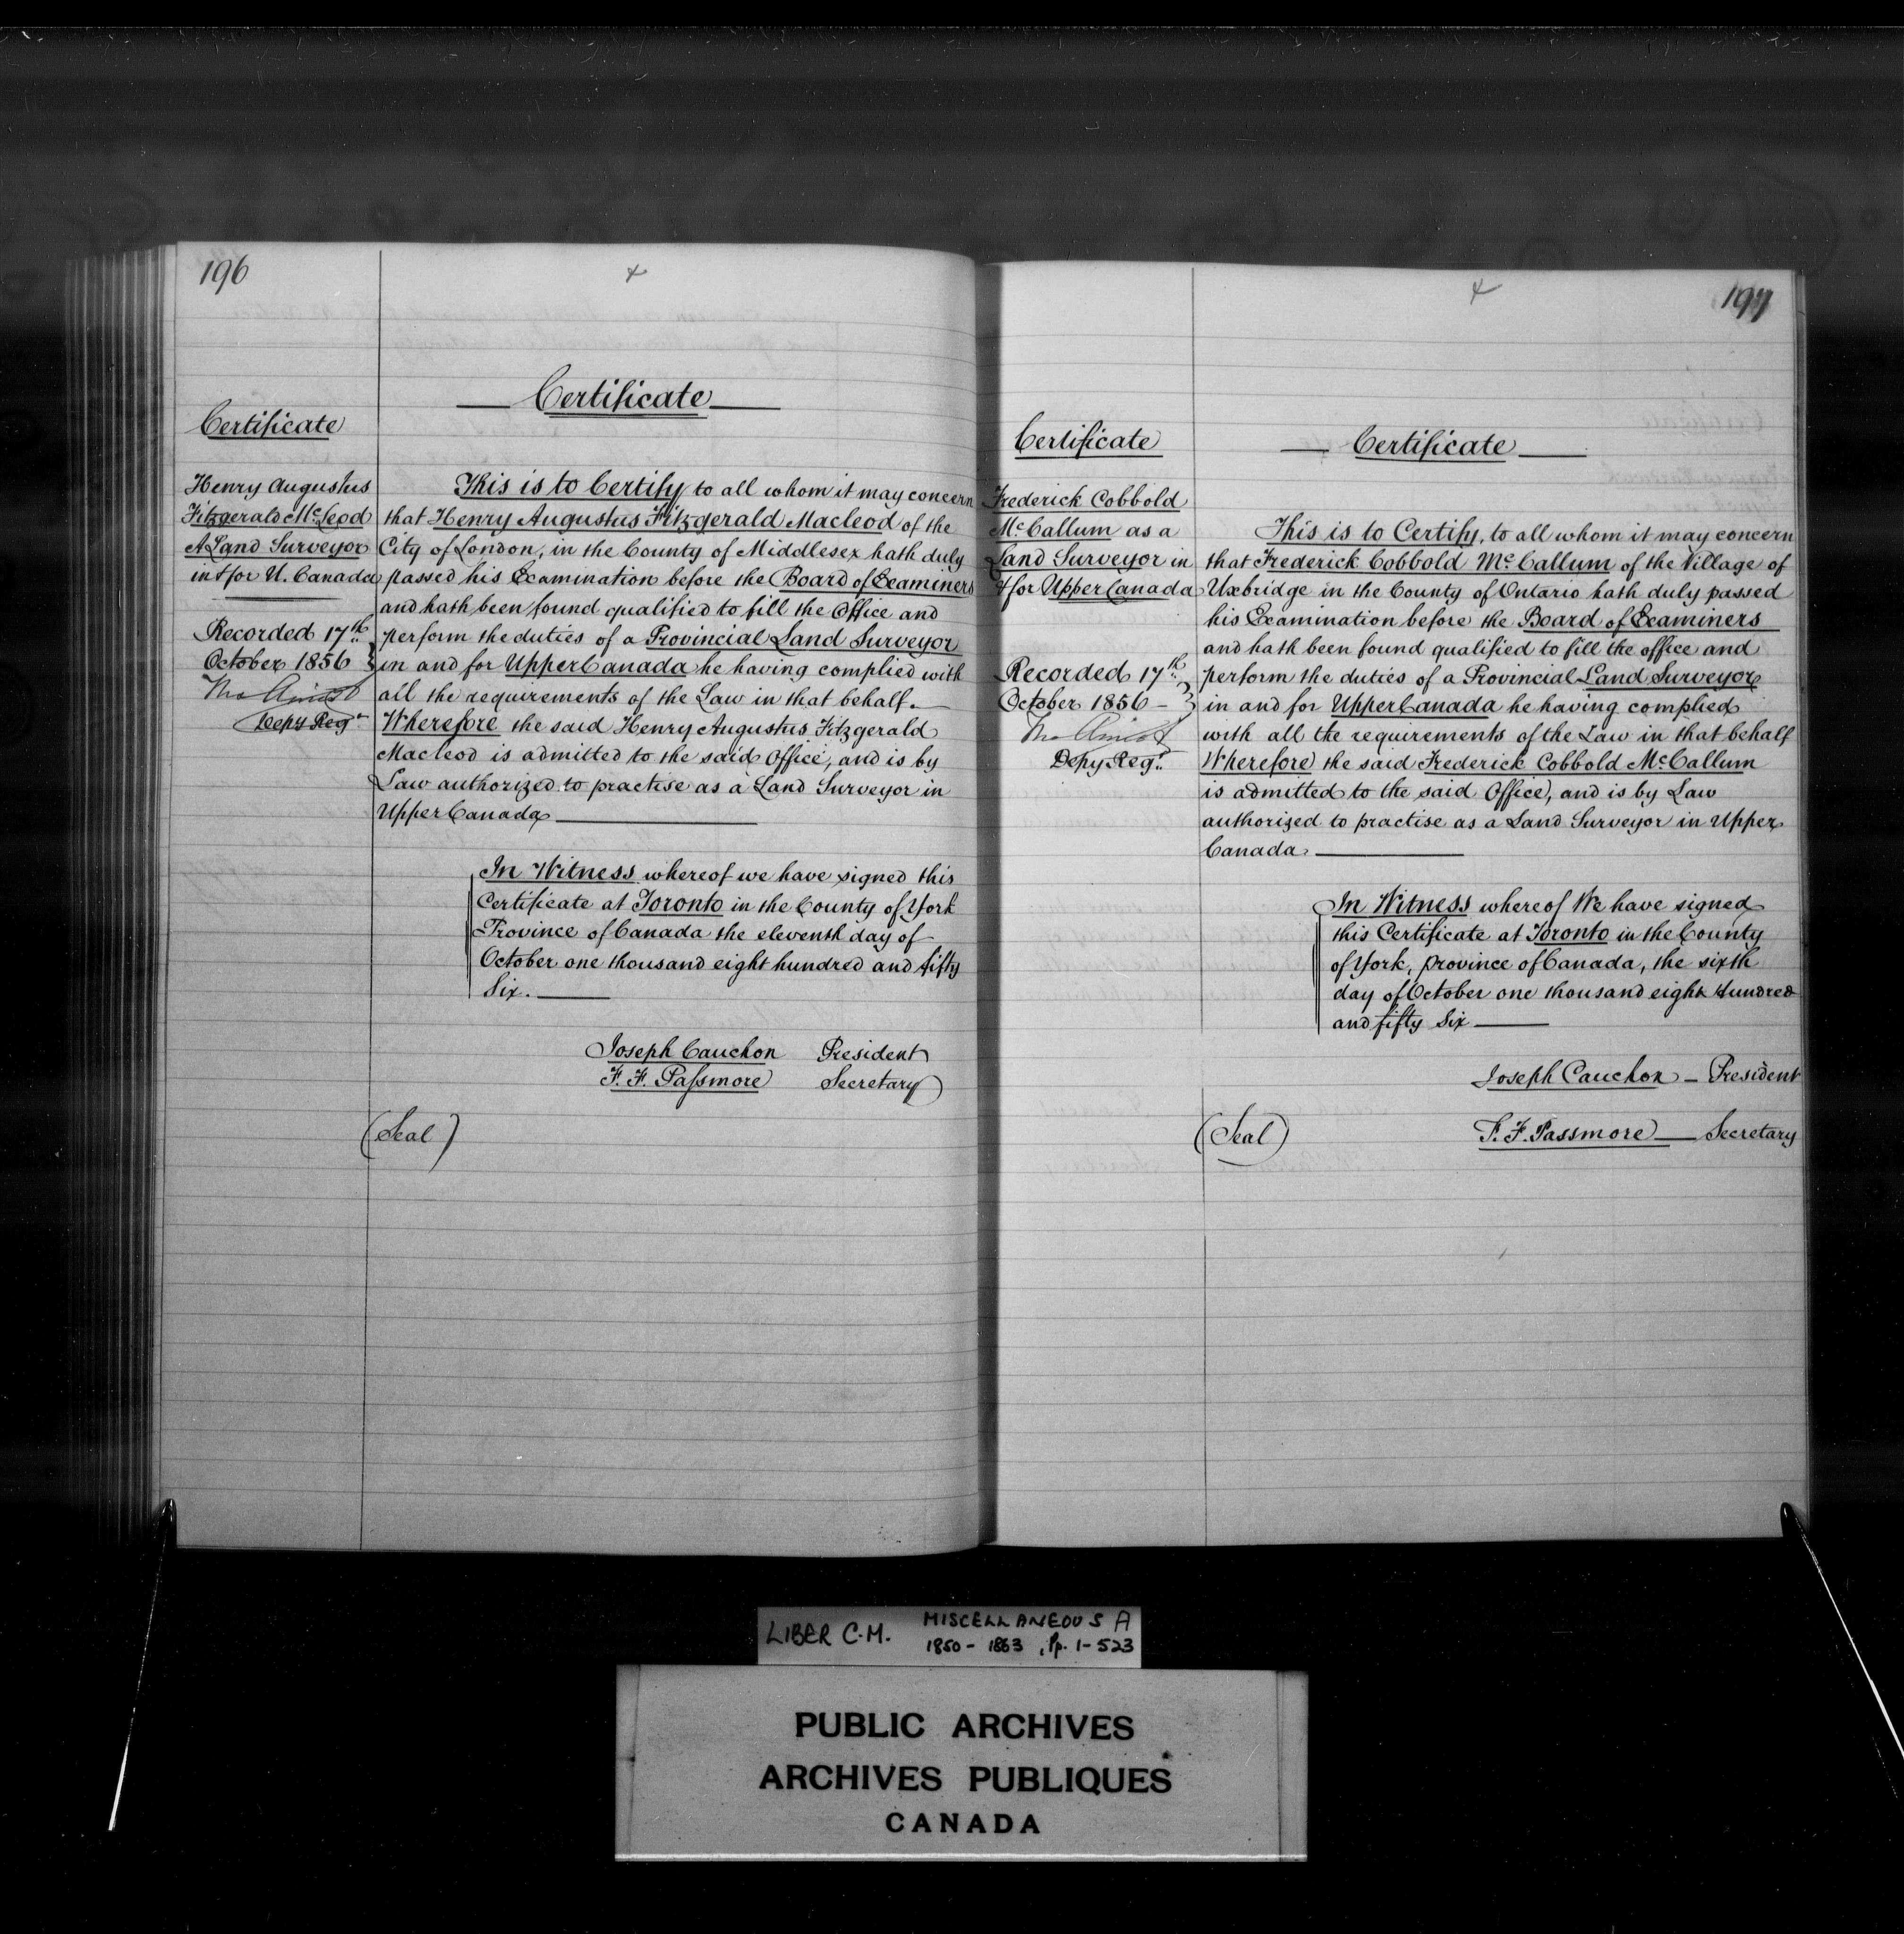 196
Certificate
Henry Augustus
Fitzgerald McLeod
A Land Surveyor
in & for U. Canada
Recorded 17th
October 1856
Depy Regr
Certificate
This is to Certify to all whom it may concern
that Henry Augustus Fitzgerald Macleod of the
City of London, in the County of Middlesex hath duly
passed his Examination before the Board of Examiners
and hath been found qualified to fill the Office and
perform the duties of a Provincial Land Surveyor
in and for Upper Canada he having complied with
all the requirements of the Law in that behalf.
Wherefore the said Henry Augustus Fitzgerald
Macleod is admitted to the said Office, and is by
Law authorized to practise as a Land Surveyor in
Upper Canada
In Witness whereof we have signed this
Certificate at Toronto in the County of York
Province of Canada the eleventh day of
October one thousand eight hundred and fifty
Six.
Joseph Cauchon President
F. F. Passmore Secretary
(Seal)
197
Certificate
Frederick Cobbold
McCallum as a
Land Surveyor in
& for Upper Canada
Recorded 17th
October 1856
Depy Regr
Certificate
This is to Certify, to all whom it may concern
that Frederick Cobbold McCallum of the Village of
Uxbridge in the County of Ontario hath duly passed
his Examination before the Board of Examiners
and hath been found qualified to fill the office and
perform the duties of a Provincial Land Surveyor
in and for Upper Canada he having complied
with all the requirements of the Law in that behalf
Wherefore the said Frederick Cobbold McCallum
is admitted to the said Office, and is by Law
authorized to practise as a Land Surveyor in Upper
Canada.
In Witness whereof We have signed
this Certificate at Toronto in the County
of York, province of Canada, the sixth
day of October one thousand eight Hundred
and fifty Six
Joseph Cauchon – President
F. F. Passmore Secretary
(Seal)
LIBER C.M. MISCELLANEOUS A
1850 - 1863, Pp. 1-523
PUBLIC ARCHIVES
ARCHIVES PUBLIQUES
CANADA